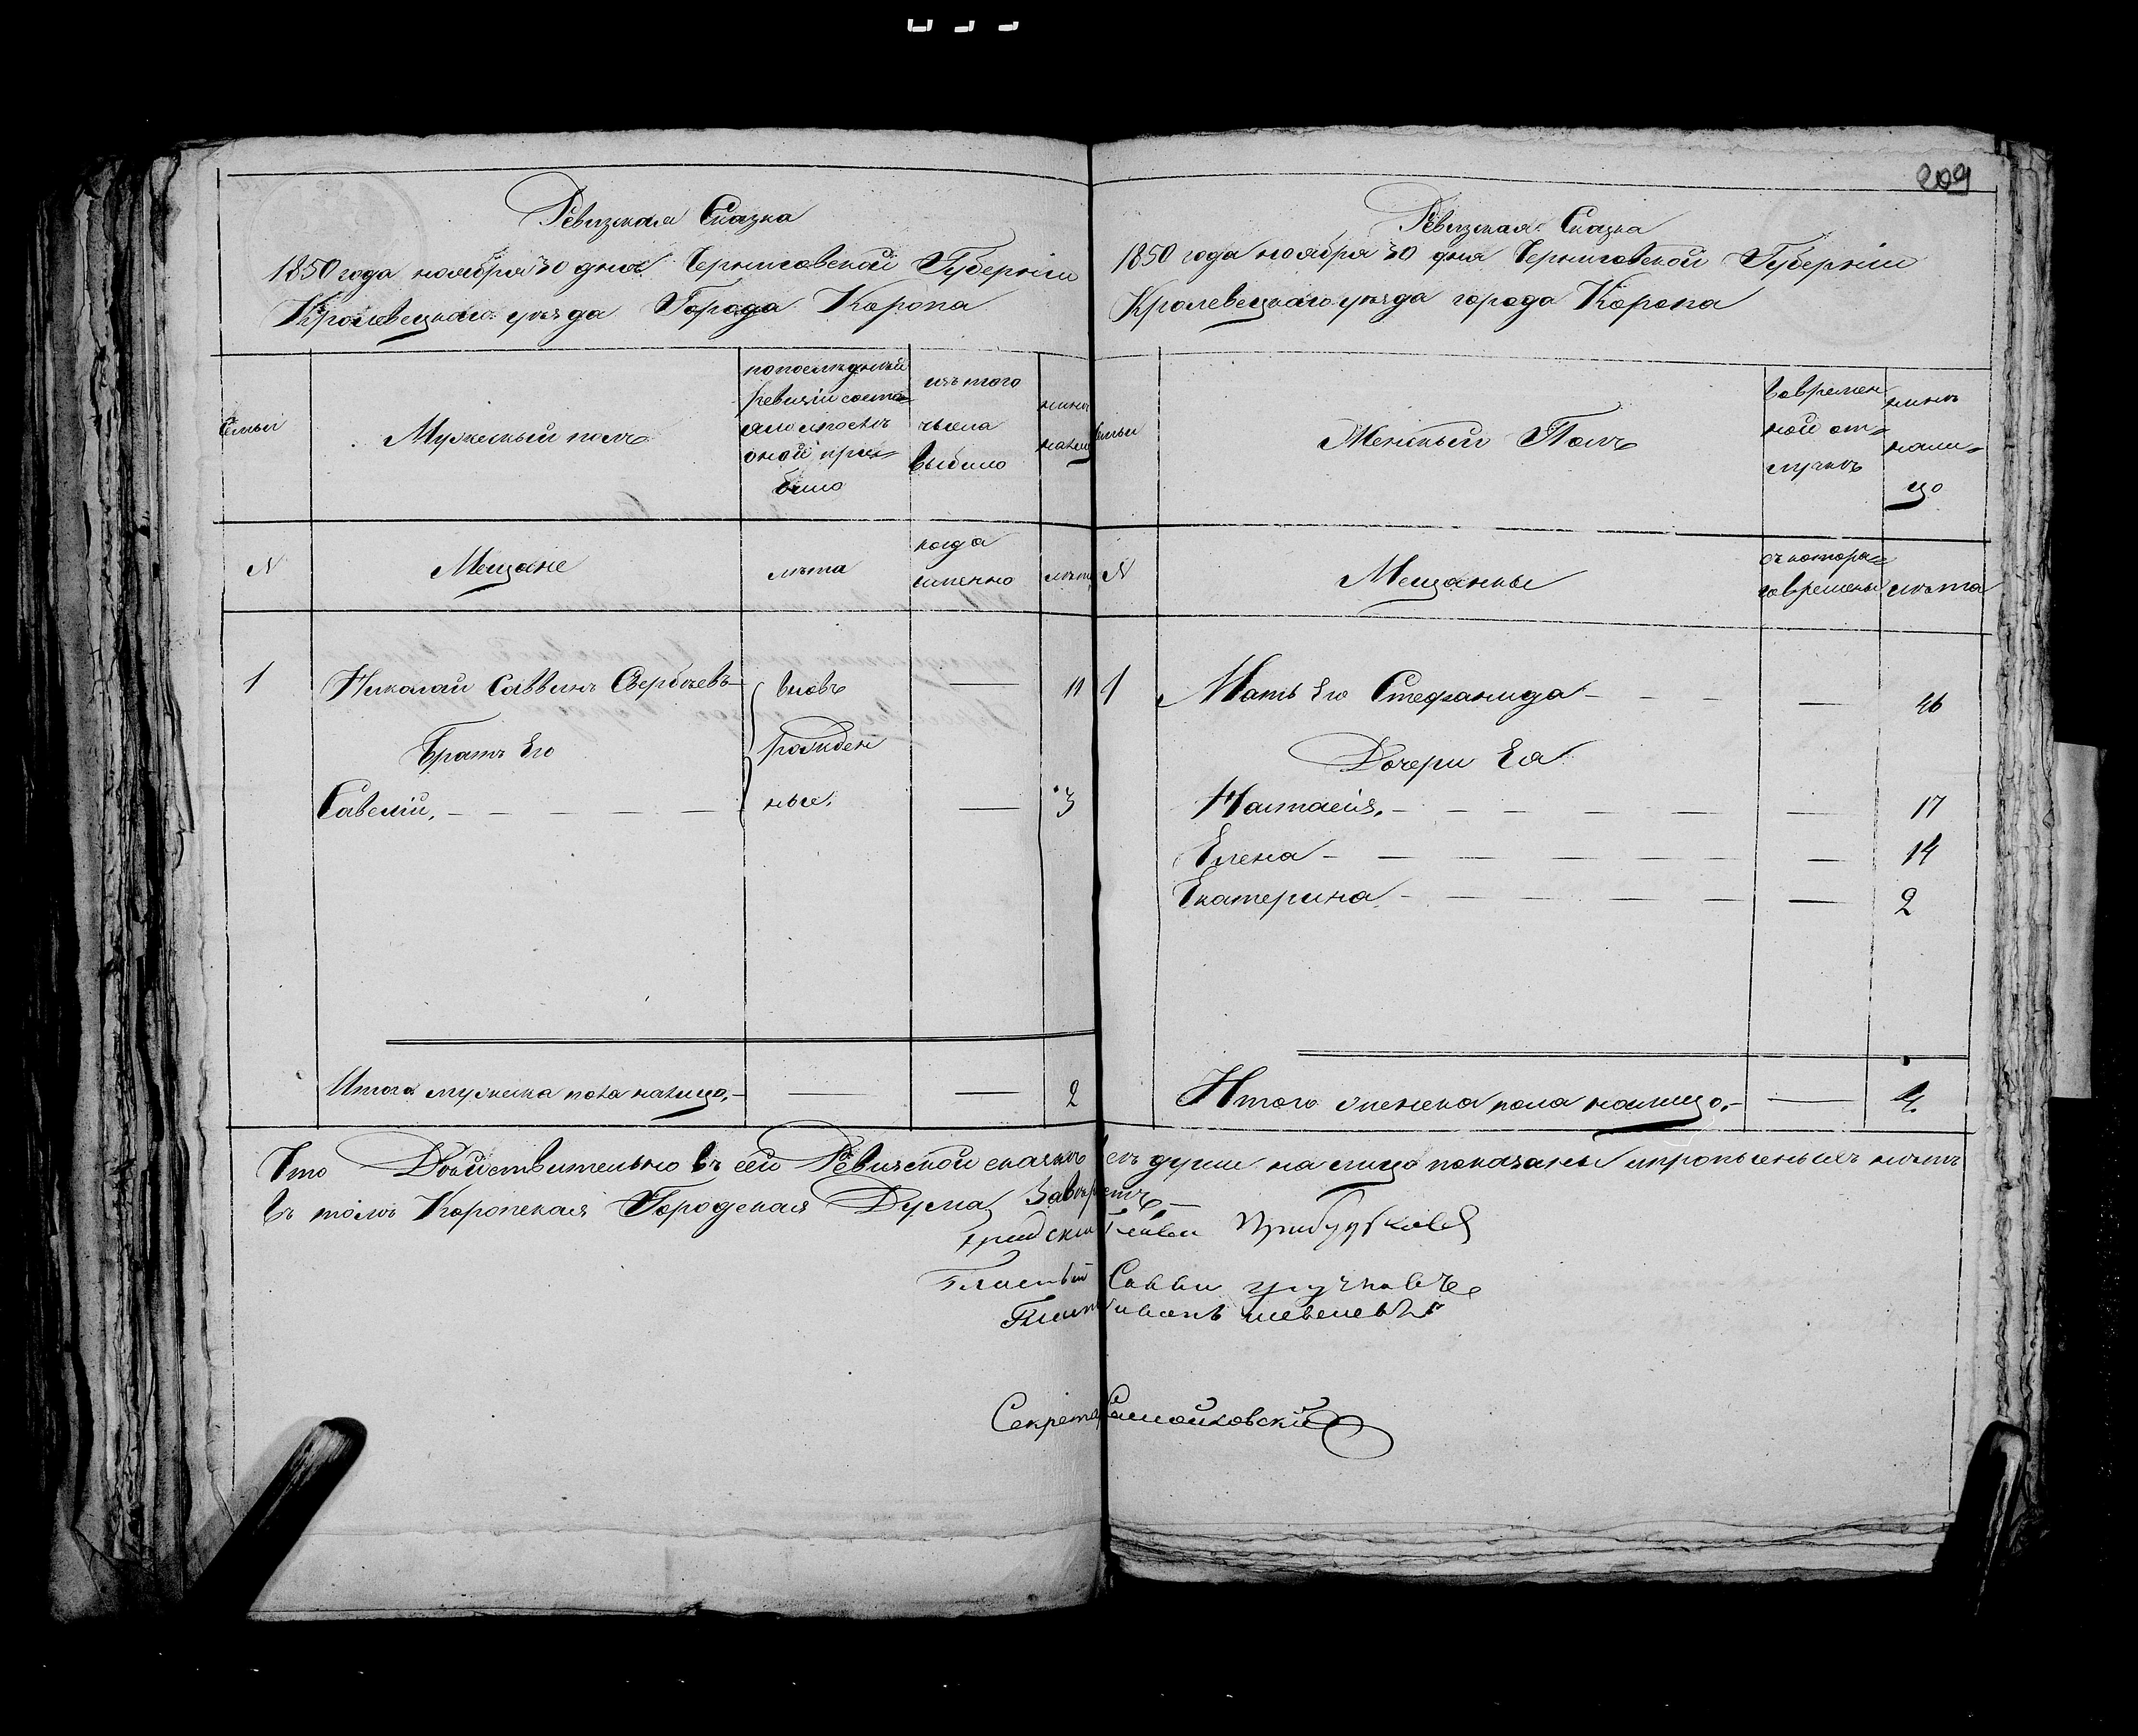 209
Ревизская Сказка
1850 года ноября 30 дня Черниговской Губерніи
Кролевецкаго уезда Города Коропа
Семьи
Мужеский полъ
по последней
ревизіи состо=
яло и после
оной при=
было
изъ того
числа
выбыло
ныне
налицо
N
Мещане
лета
когда
именно
лета
1
Николай Саввинъ
вновь
—
11
Братъ Его
рожден
Савелій. — — — — —
ные.
—
3
Итого мужеска пола налицо. —
—
—
2
Ревизская Сказка
1850 года ноября 30 дня Черниговской Губерніи
Кролевецкаго уезда города Коропа
Семьи
Женский Полъ
Во времен
ной от=
лучке
ныне
нали=
цо
N
Мещанки
съ котора=
го времени
лета
1
Мать Его Стефанида — — —
—
46
Дочери Ея
Настасия. — — — — — —
—
17
Елена — — — — — —
—
14
Екатерина — — — — — —
—
2
Итого женска пола налицо. —
—
4.
Что Действительно въ сей Ревизской сказке все души на лицо показаны и пропущеныхъ нетъ
въ томъ Коропская Городская Дума Заверяетъ —
Гласный Савва
Гласный Иванъ
Секретарь